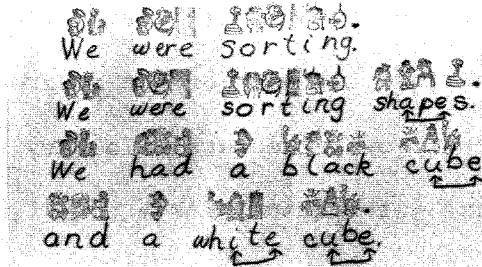 We were sorting.
We were sorting shapes.
We had a black cube
and a white cube.